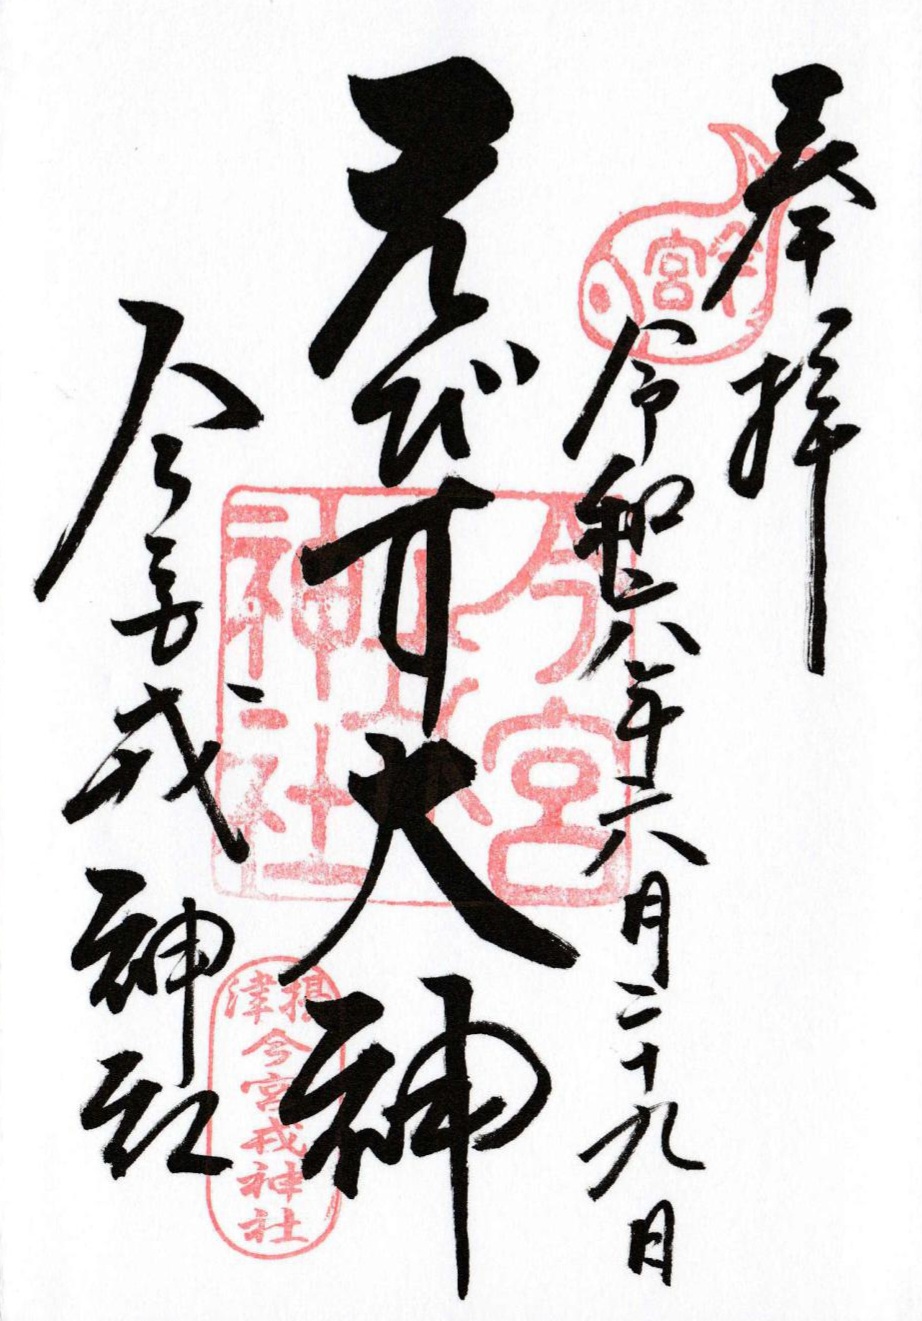 奉拝
今宮
令和六年六月二十九日
えびす大神
今宮戎神社
今宮戎神社
摂津
今宮戎神社